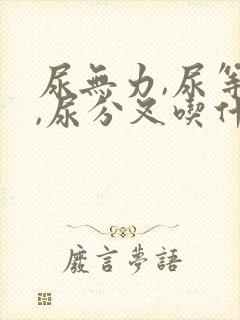 尿無力,尿等
,尿分叉喫什
廢言夢語